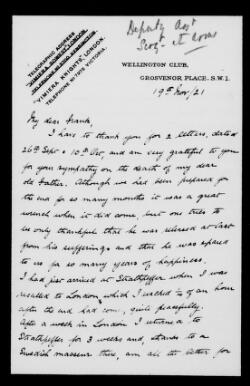 Deputy Asst
Serjt at Arms
TELEGRAPHIC ADDRESS
"VIMIERA KNIGHTS" LONDON.
TELEPHONE Nº 7975 VICTORIA.
WELLINGTON CLUB,
GROSVENOR PLACE. S.W.1.
19th Nov/21
My dear Frank,
I have to thank you for 2 letters, dated
26th Sept & 10th Oct, and am very grateful to you
for your sympathy on the death of my dear
old Father. Although we had been prepared for
the end for so many months it was a great
wrench when it did come, but one tries to
be only thankful that he was released at last
from his sufferings and that he was spared
to us for so many years of happiness.
I had just arrived at Strathpeffer when I was
recalled to London which I reached ½ of an hour
after the end had come, quite peacefully.
After a week in London I returned to
Strathpeffer for 3 weeks and, thanks to a
Swedish masseur there, am all the better for